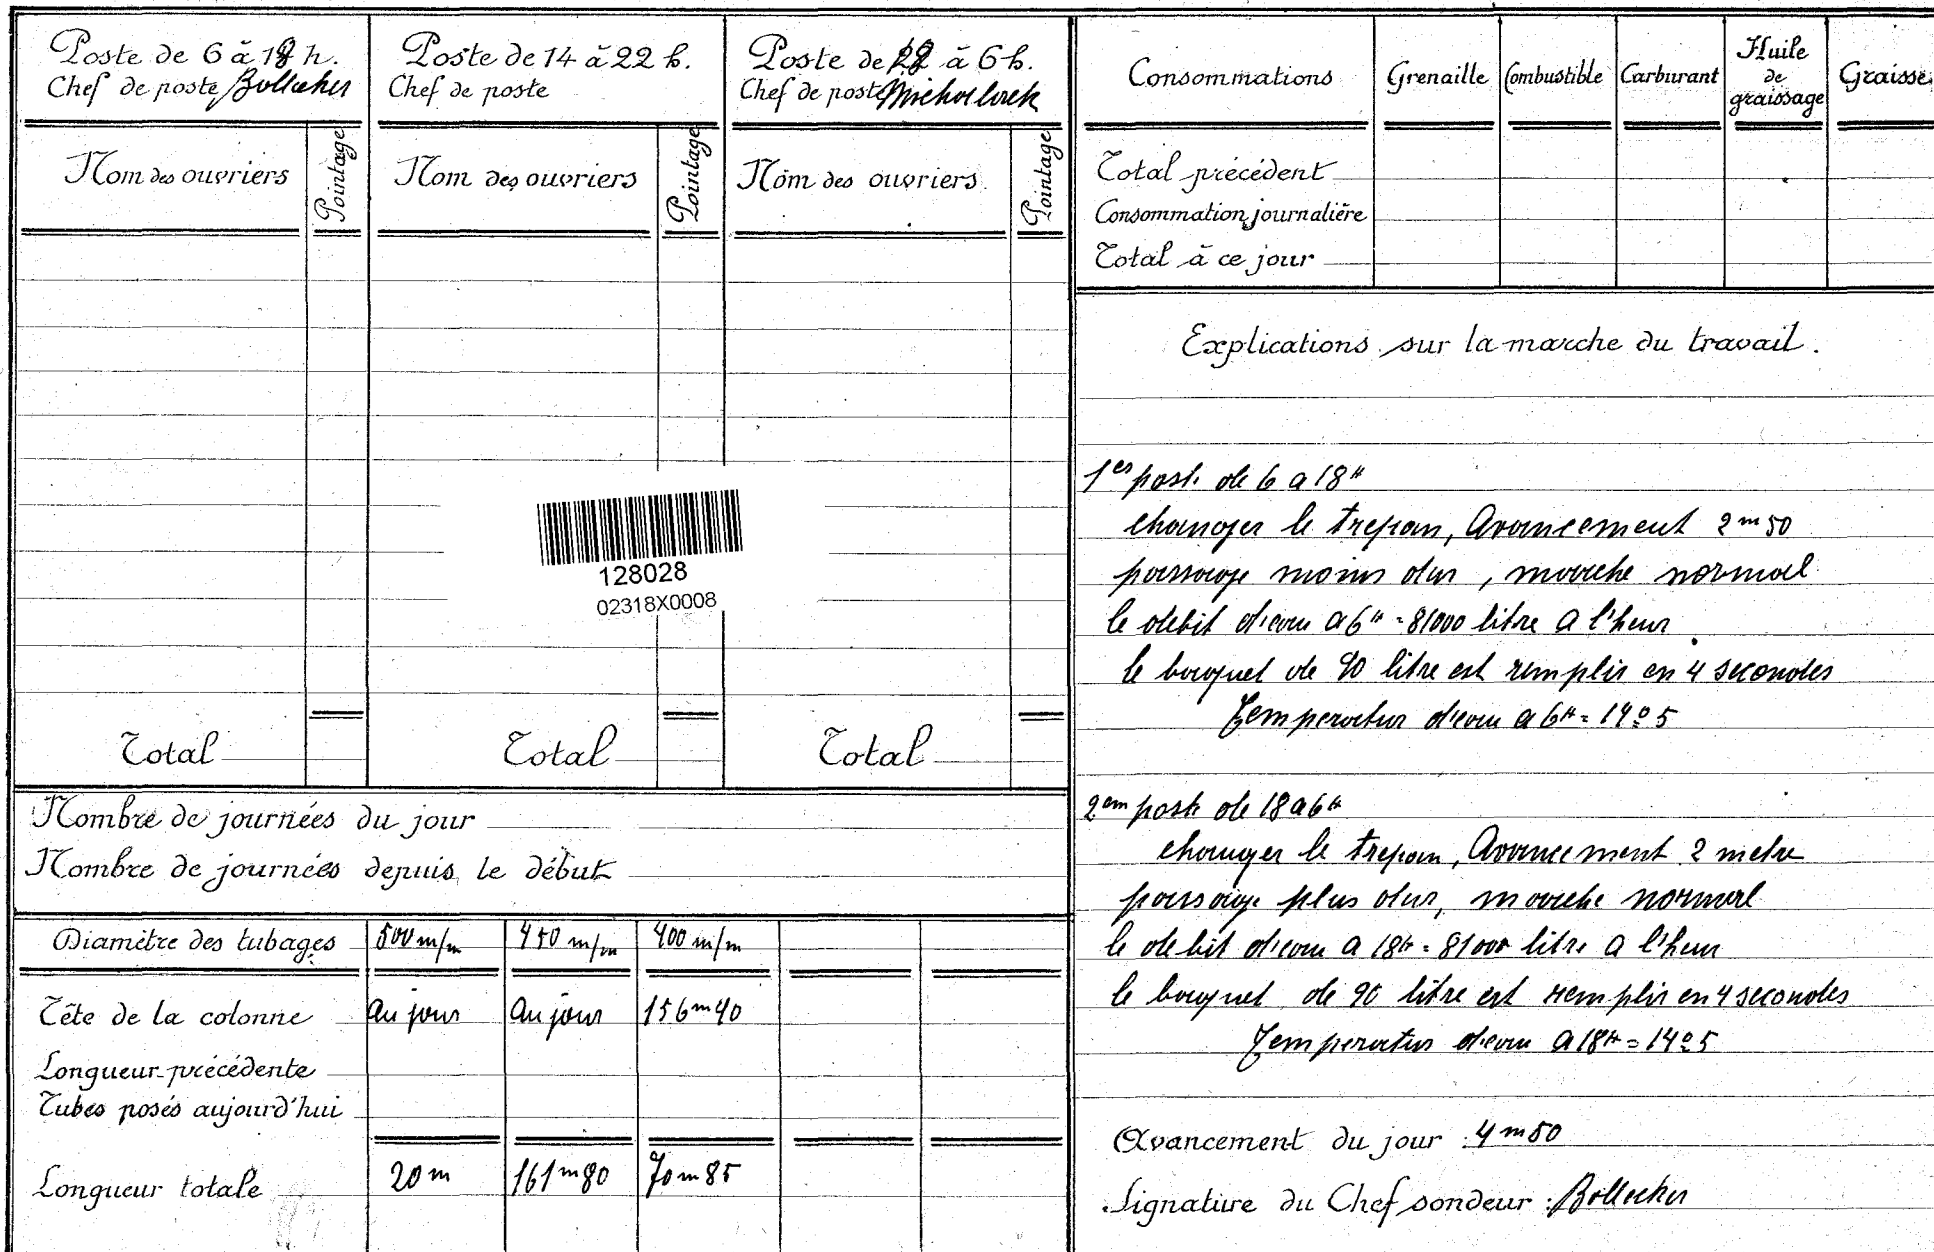 Poste de 6 à 18 h.
Chef de poste Bollecker
Nom des ouvriers
Pointage
Total
Poste de 14 à 22 h.
Chef de poste
Nom des ouvriers
Pointage
Total
Poste de 18 à 6 h.
Chef de poste
Nom des ouvriers
Pointage
Total
128028
02318X0008
Nombre de journées du jour
Nombre de journées depuis le début
Diamètre des tubages 500 m/m 450 m/m 400 m/m
Tête de la colonne au jour au jour 156m40
Longueur précédente
Tubes posés aujourd'hui
Longueur totale 20m 161m80 70m85
Consommations Grenaille Combustible Carburant Huile de graissage Graisse
Total précédent
Consommation journalière
Total à ce jour
Explications sur la marche du travail.
1er post. de 6 a 18H
changer le trepan, Avancement 2m50
passage moins dur, marche normal
le debit d'eau a 6H = 81000 litre a l'heur
le baquet de 90 litre est remplir en 4 secondes
Temperatur d'eau a 6H = 14°5
2em poste de 18 a 6H
changer le trepan, Avancement 2 metre
passage plus dur, marche normal
le debit d'eau a 18H = 81000 litre a l'heur
le baquet de 90 litre est remplir en 4 secondes
Temperatur d'eau a 18H = 14°5
Avancement du jour : 4m50
Signature du Chef sondeur : Bollecker